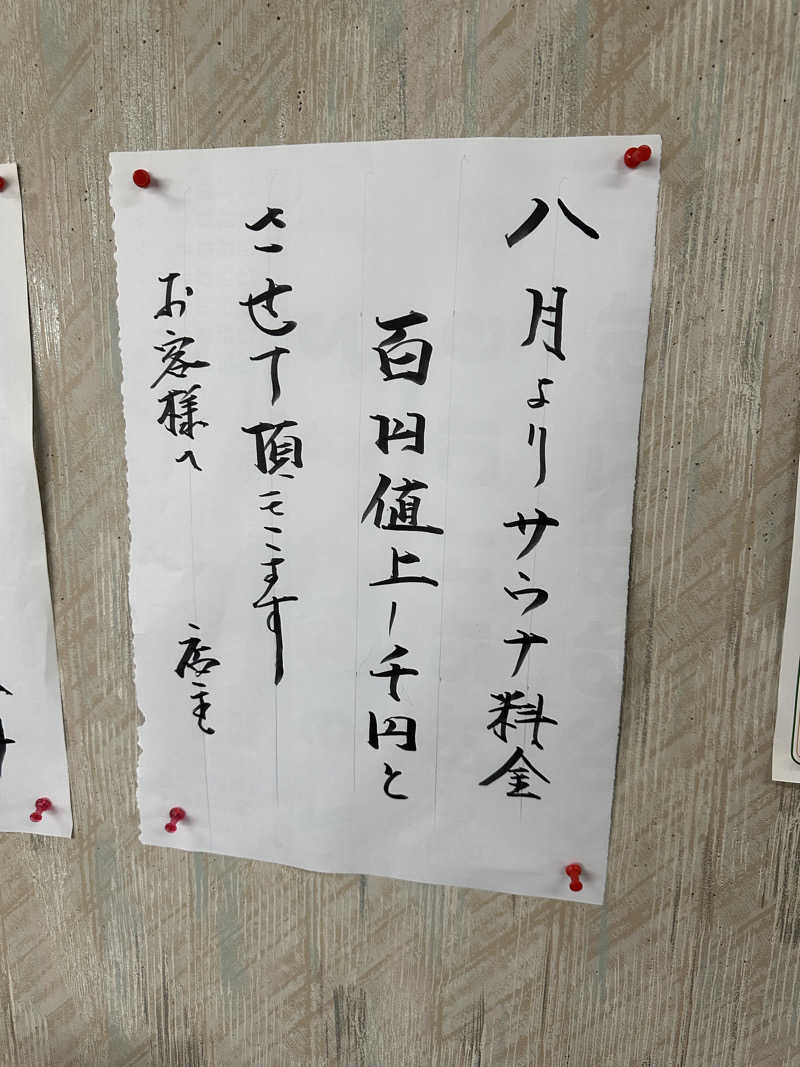 八月よりサウナ料金
百円値上し千円と
させて頂きます
お客様へ 店主